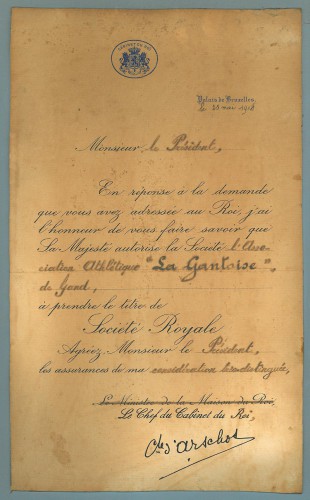 Palais de Bruxelles,
Monsieur le Président,
En réponse à la demande
que vous avez adressée au Roi, j'ai
l'honneur de vous faire savoir que
Sa Majesté autorise la Société l'Asso-
ciation Athlétique "La Gantoise",
de Gand,
à prendre le titre de
Société Royale
Agréez, Monsieur le Président,
les assurances de ma considération très distinguée,
Le Ministre de la Maison du Roi,
Le Chef du Cabinet du Roi,
d'Arschot